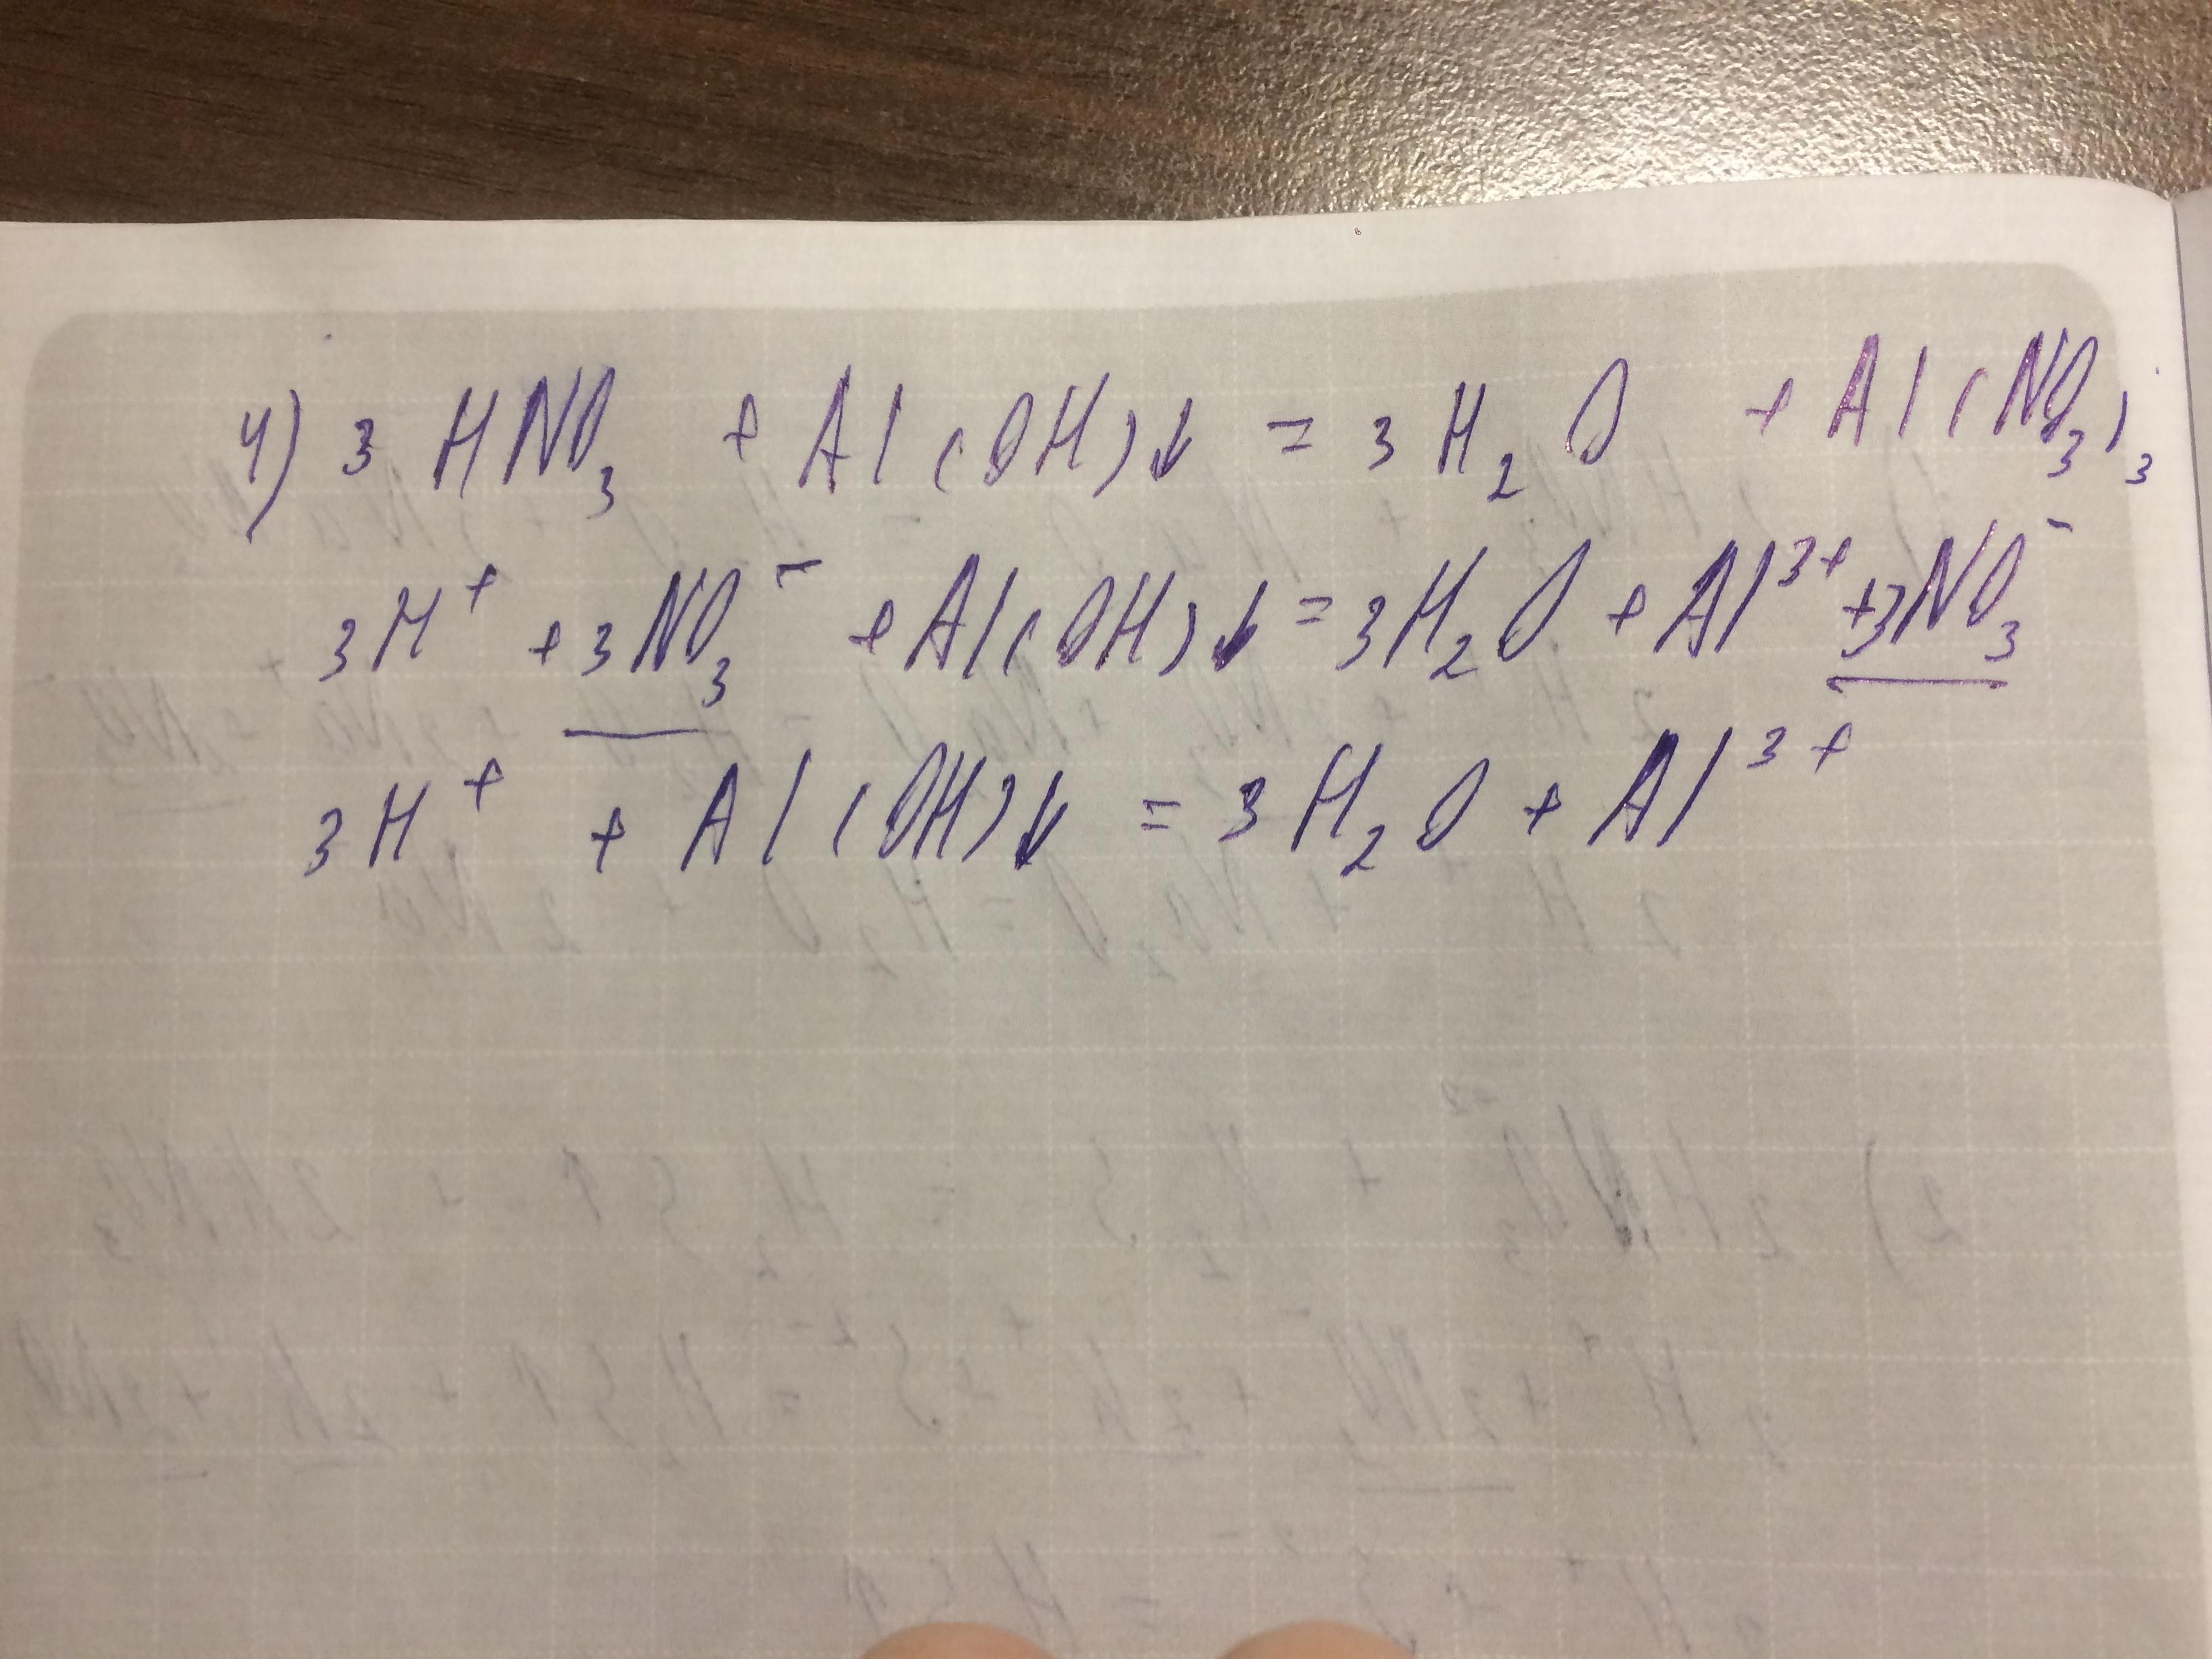 4) 3 HNO₃ + Al(OH)↓ = 3 H₂O + Al(NO₃)₃
3H⁺ + 3NO₃⁻ + Al(OH)↓ = 3H₂O + Al³⁺ + 3NO₃⁻
3H⁺ + Al(OH)↓ = 3H₂O + Al³⁺